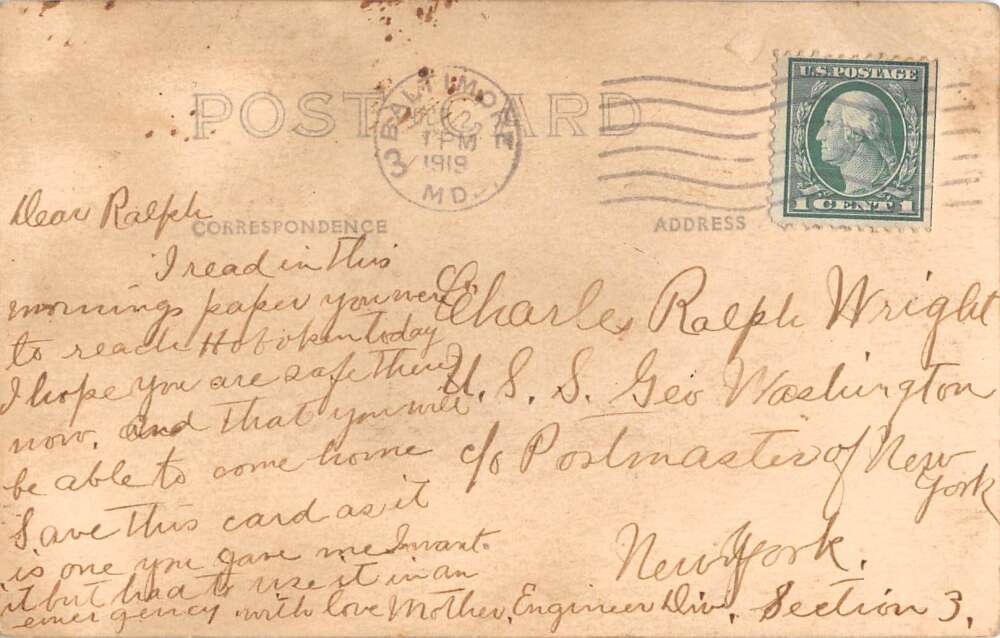 POST CARD
BALTIMORE
2
1 PM
1919
MD.
3
U.S. POSTAGE
1 CENT 1
CORRESPONDENCE
ADDRESS
Dear Ralph
I read in this
mornings paper you were
to reach Hoboken today
I hope you are safe there
now. and that you will
be able to come home
Save this card as it
is one you gave me I want
it but had to use it in an
emergency. with love Mother.
Charles Ralph Wright
U. S. S. Geo Washington
c/o Postmaster of New
York
New York.
Engineer Div. Section 3.